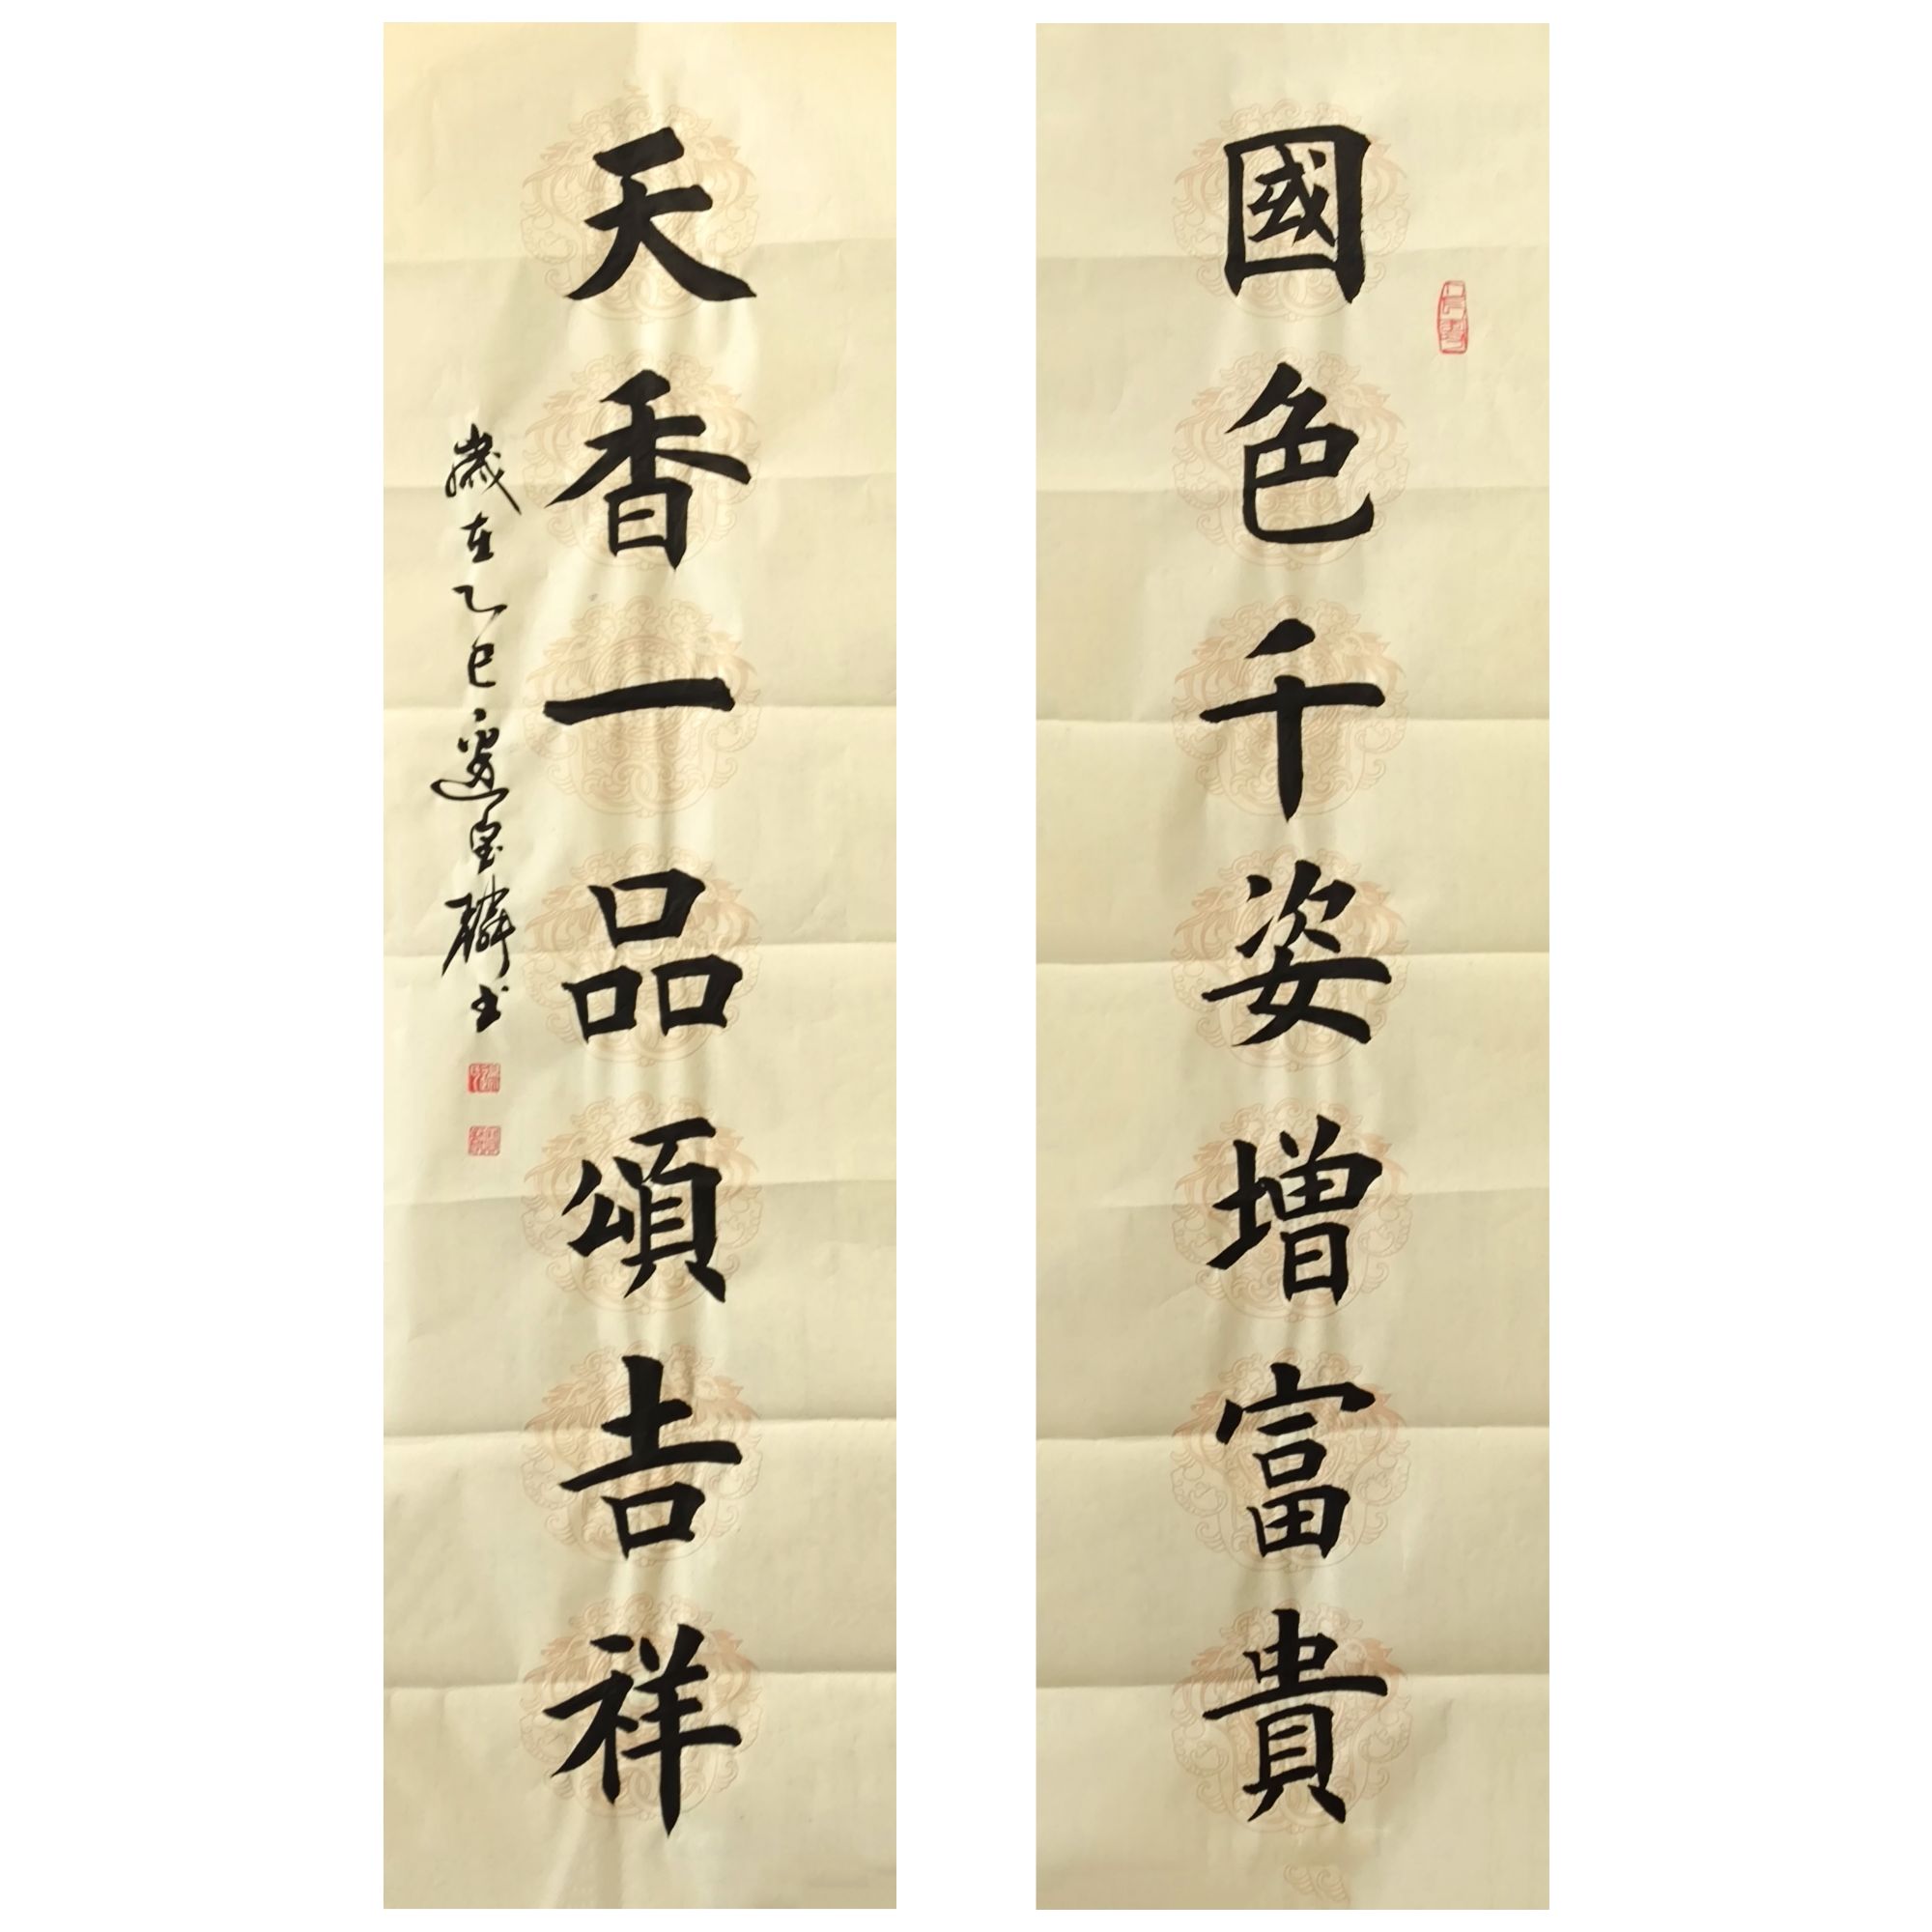 國色千姿增富貴
天香一品頌吉祥
歲在乙巳邊寶麟書